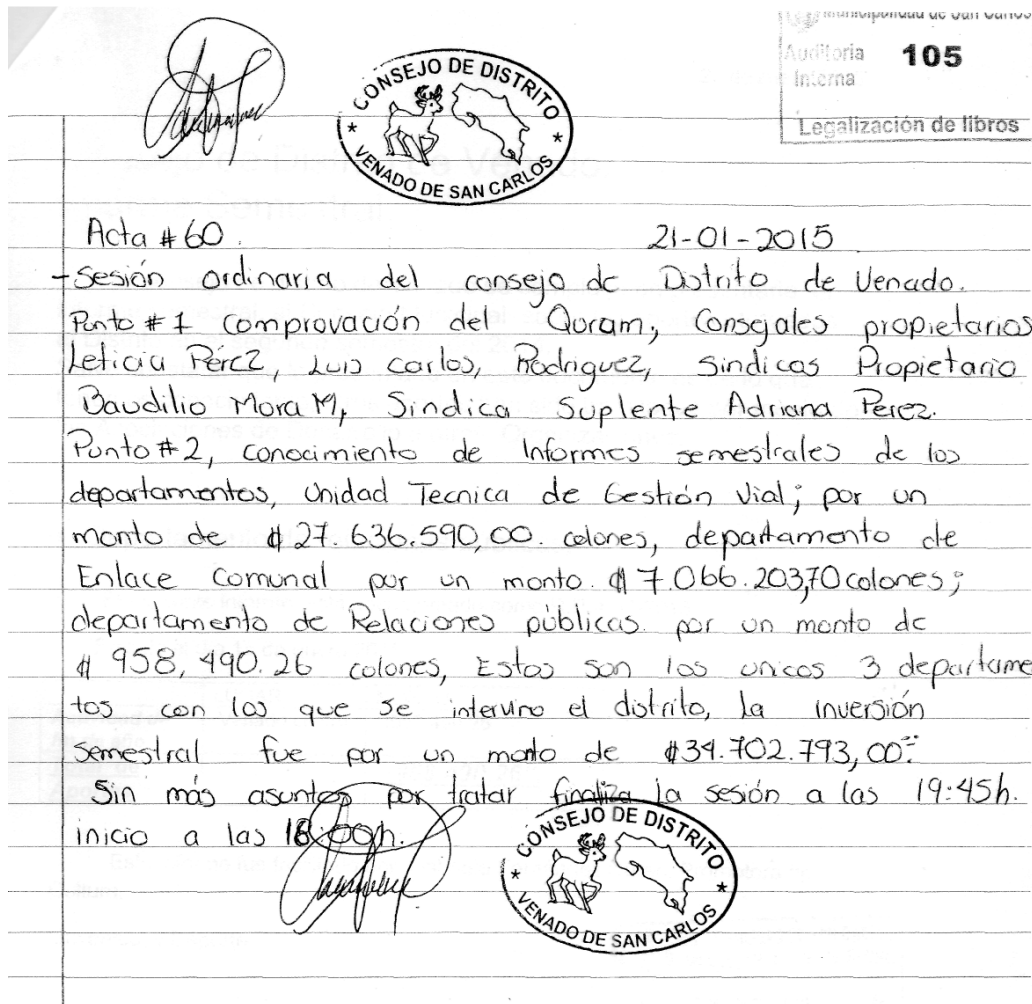 Municipalidad de San Carlos
Auditoria 105
Interna
Legalización de libros
CONSEJO DE DISTRITO
VENADO DE SAN CARLOS
Acta #60. 21-01-2015
-Sesión ordinaria del consejo de Distrito de Venado.
Punto #1 comprovación del Quram, Consejales propietarios
Leticia Pérez, Luis carlos, Rodriguez, Sindicos Propietario
Baudilio Mora M, Sindica Suplente Adriana Perez.
Punto #2, conocimiento de Informes semestrales de los
departamentos, Unidad Tecnica de Gestión Vial; por un
monto de ₡27.636.590,00. colones, departamento de
Enlace Comunal por un monto ₡7.066.203,70 colones;
departamento de Relaciones públicas por un monto de
₡ 958,490.26 colones, Estos son los unicos 3 departame
tos con los que se intervino el distrito, la inversión
semestral fue por un monto de ₡34.702.793,00.
Sin más asuntos por tratar finaliza la sesión a las 19:45h.
inicio a las 18:00h.
CONSEJO DE DISTRITO
VENADO DE SAN CARLOS